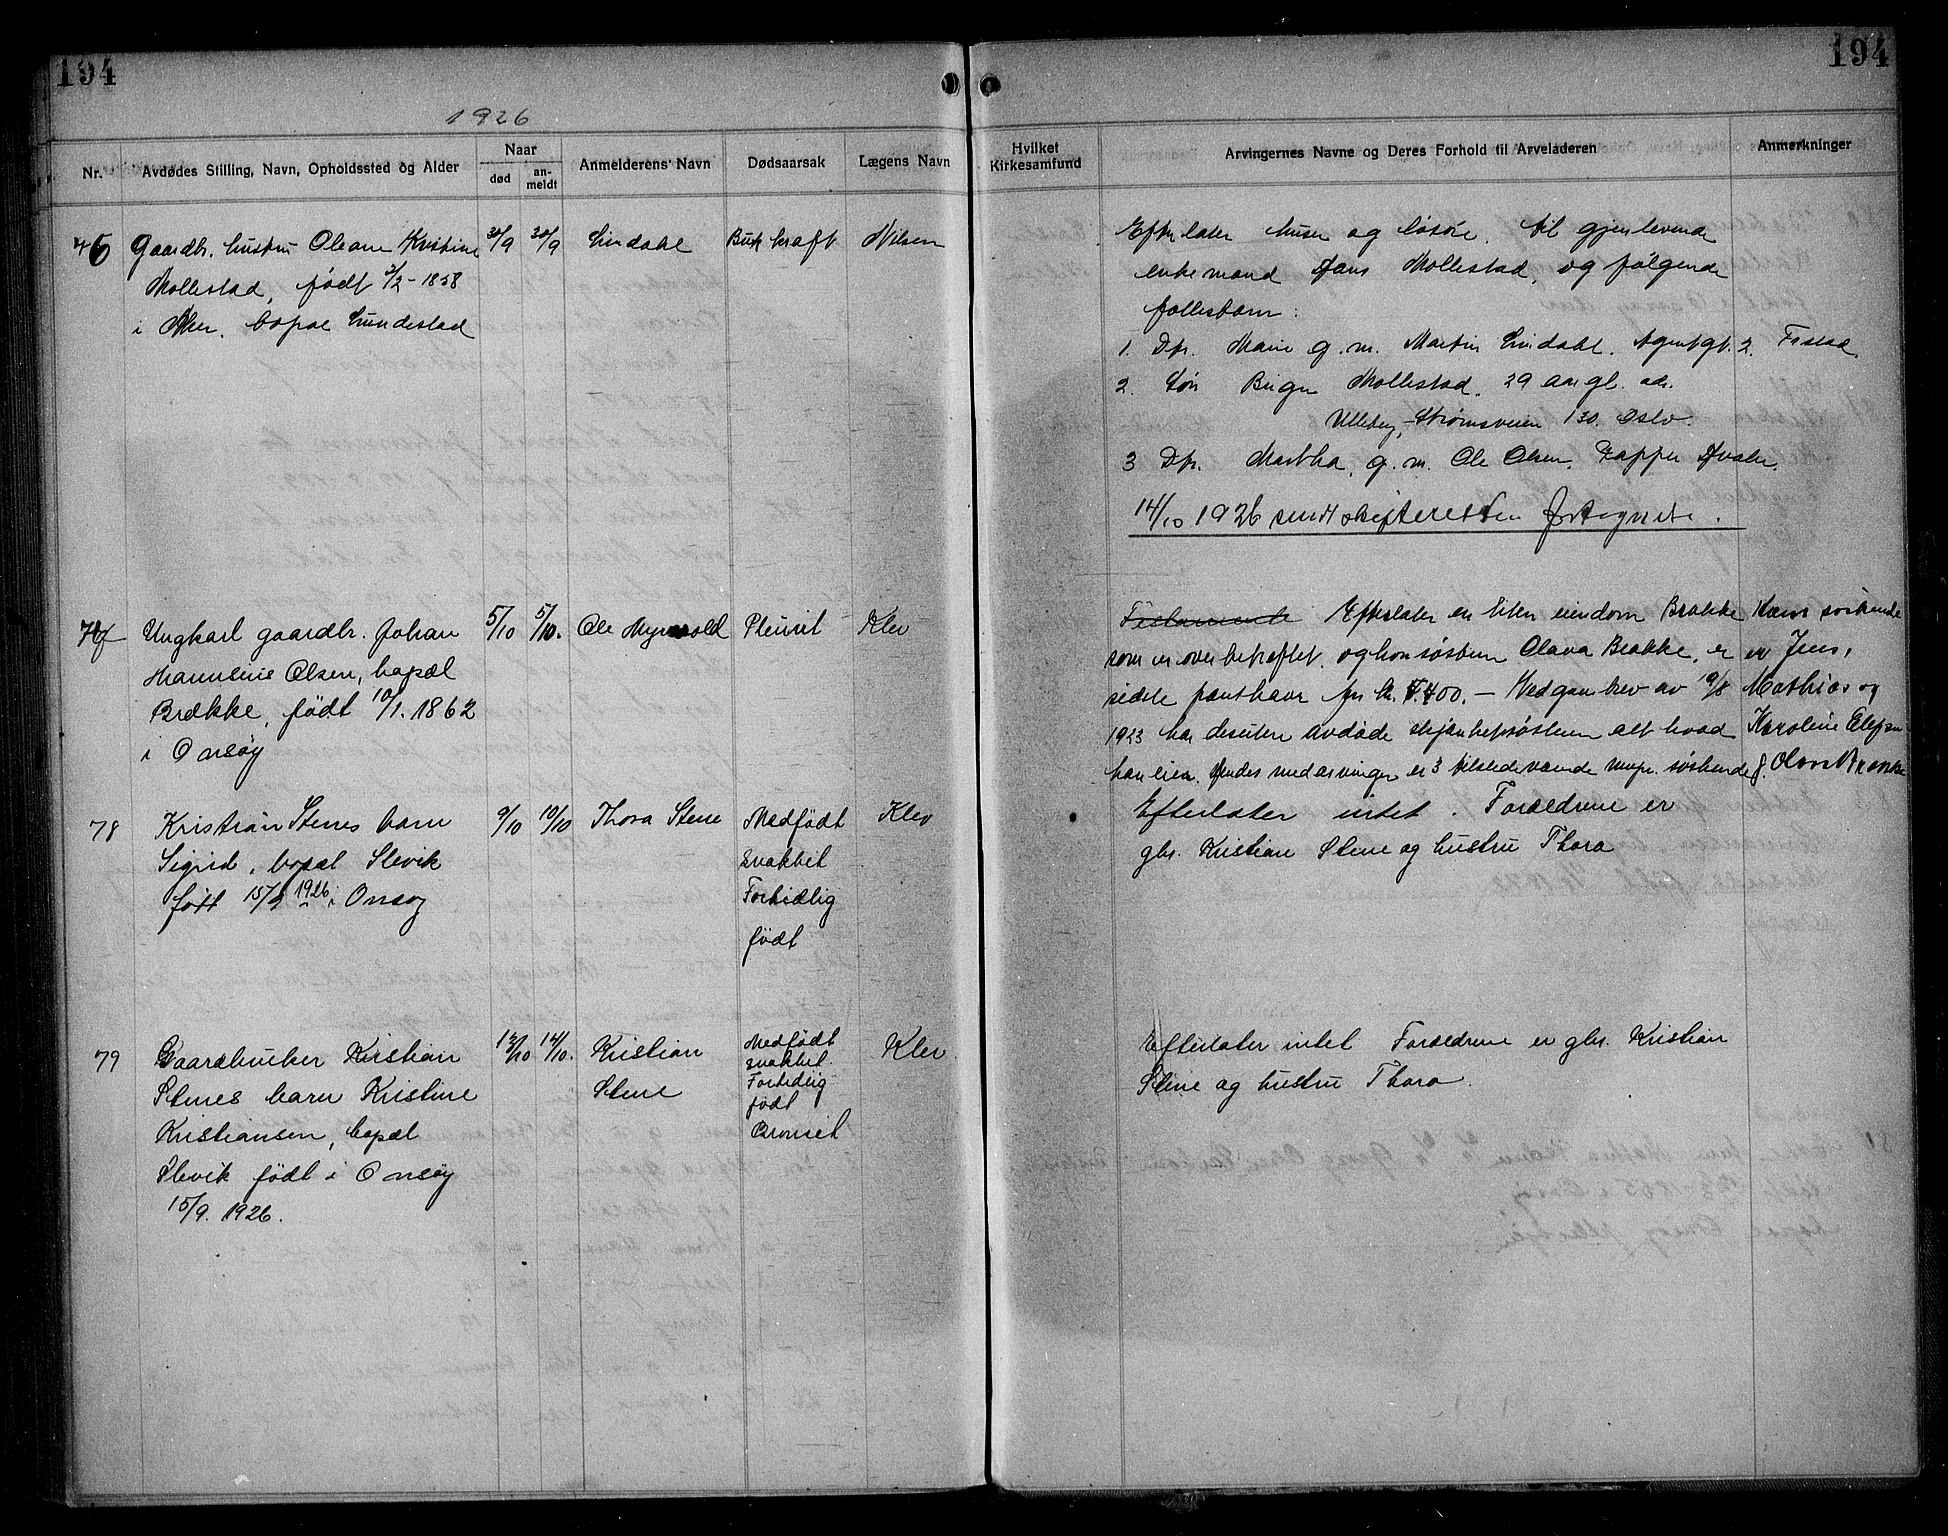 194
194
1926
Nr.
Avdødes Stilling, Navn, Opholdssted og Alder
Naar
død
an-
meldt
Anmelderens Navn
Dødsaarsak
Lægens Navn
Hvilket
Kirkesamfund
Arvingernes Navne og Deres Forhold til Arveladeren
Anmerkninger
76
Gaardbr. hustru Oleane Kristine
Mollestad, født 2/2 - 1858
i Aker, bopæl Lundestad
30/9
30/9
Lindahl
Buk kræft
Nilsen
Efterlater huser og løsøre, til gjenlevende
enkemand Hans Mollestad, og følgende
fællesbarn:
1. Dtr. Marie g. m. Martin Lindahl. Agentgt. 2. Frstad.
2. Søn Birger Mollestad, 29 aar gl. adr.
Ulleberg, Strømsveien 130. Oslo.
3 Dtr. Martha, g. m. Ole Olsen, Papper Hvaler.
14/10 1926 sendt skifteretten fortegnelse.
77
Ungkarl gaardbr. Johan
Mannelius Olsen, bopæl
Brække, født 10/1. 1862
i Onsøy
5/10
5/10.
Ole Myrvold
Pleurit
Klev
Testamente Efterlater en liten eiendom Brække
som er overbehæftet, og hans søster Olava Brække, er
sidste panthaver for kr. 7.400. - Ved gavebrev av 10/8
1923 har desuten avdøde skjænket søsteren alt hvad
han eier. Hendes medarvinger er 3 tilstedeværende myn. søskende
Hans søskende
er Jens,
Mathias og
Karoline Elefsen
f. Olsen Brække
78
Kristian Stenes barn
Sigrid, bopæl Slevik
født 15/9 1926 i Onsøy
9/10
10/10
Thora Stene
Medfødt
svakhet
Fortidlig
født
Klev
Efterlater intet. Forældrene er
gbr. Kristian Stene og hustru Thora
79
Gaardbruker Kristian
Stenes barn Kristine
Kristiansen, bopæl
Slevik født i Onsøy
15/9. 1926.
12/10
14/10.
Kristian
Stene
Medfødt
svakhet
Fortidlig
født
Bronsit
Klev
Efterlater intet Forældrene er gbr. Kristian
Stene og hustru Thora.